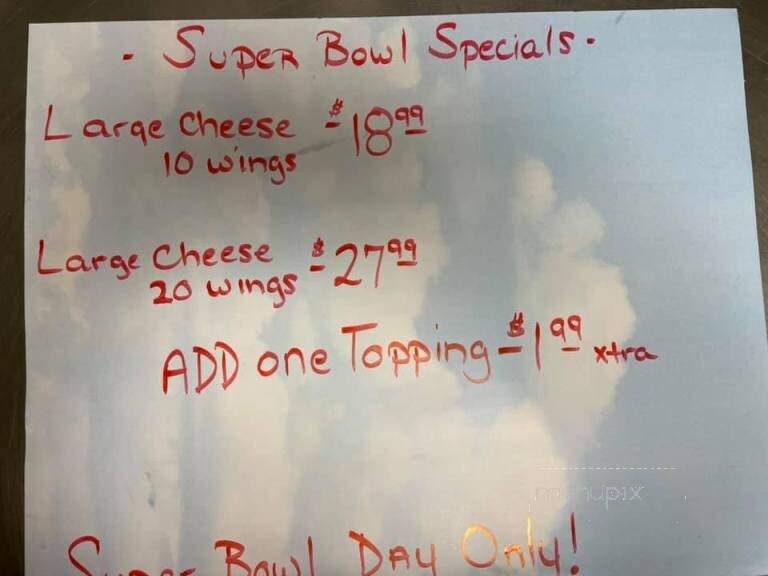 · Super Bowl Specials ·
Large Cheese - $18.99
10 wings
Large Cheese - $27.99
20 wings
ADD one Topping - $1.99 xtra
menupix
Super Bowl Day Only!